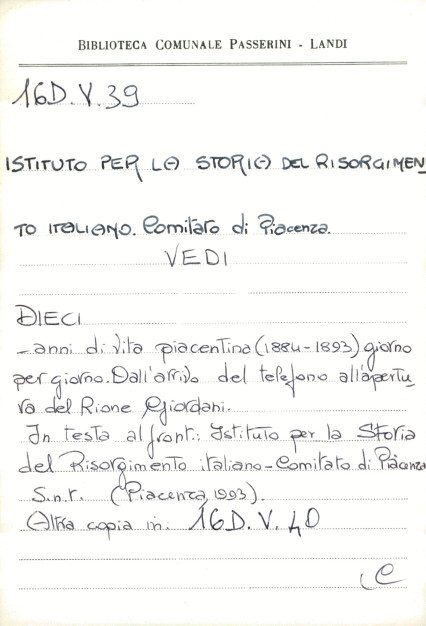 BIBLIOTECA COMUNALE PASSERINI - LANDI
16D.V.39
ISTITUTO PER LA STORIA DEL RISORGIMEN
TO ITALIANO. Comitato di Piacenza.
VEDI
DIECI
-anni di vita piacentina (1884-1893) giorno
per giorno. Dall'arrivo del telefono all'apertu
ra del Rione Giordani.
In testa al front.: Istituto per la Storia
del Risorgimento italiano-Comitato di Piacenza
S.n.t. (Piacenza, 1993).
Altra copia in: 16D.V.40